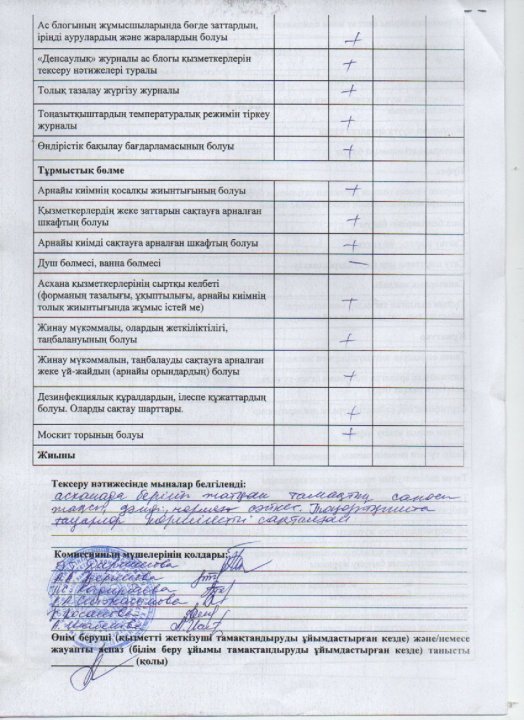 Ас блогының жұмысшыларында бөгде заттардың,
іріңді аурулардың және жаралардың болуы +
«Денсаулық» журналы ас блогы қызметкерлерін
тексеру нәтижелері туралы +
Толық тазалау жүргізу журналы +
Тоңазытқыштардың температуралық режимін тіркеу
журналы +
Өндірістік бақылау бағдарламасының болуы +
Тұрмыстық бөлме
Арнайы киімнің қосалқы жиынтығының болуы +
Қызметкерлердің жеке заттарын сақтауға арналған
шкафтың болуы +
Арнайы киімді сақтауға арналған шкафтың болуы +
Душ бөлмесі, ванна бөлмесі —
Асхана қызметкерлерінің сыртқы келбеті
(форманың тазалығы, ұқыптылығы, арнайы киімнің
толық жиынтығында жұмыс істей ме) +
Жинау мүкәммалы, олардың жеткіліктілігі,
таңбалануының болуы +
Жинау мүкәммалын, таңбалауды сақтауға арналған
жеке үй-жайдың (арнайы орындардың) болуы +
Дезинфекциялық құралдардың, ілеспе құжаттардың
болуы. Оларды сақтау шарттары. +
Москит торының болуы +
Жиыны
Тексеру нәтижесінде мыналар белгіленді:
асханада беріліп жатқан тамақтың сапасы
Комиссияның мүшелерінің қолдары:
Өнім беруші (қызметті жеткізуші тамақтандыруды ұйымдастырған кезде) және/немесе
жауапты аспаз (білім беру ұйымы тамақтандыруды ұйымдастырған кезде) танысты
(қолы)